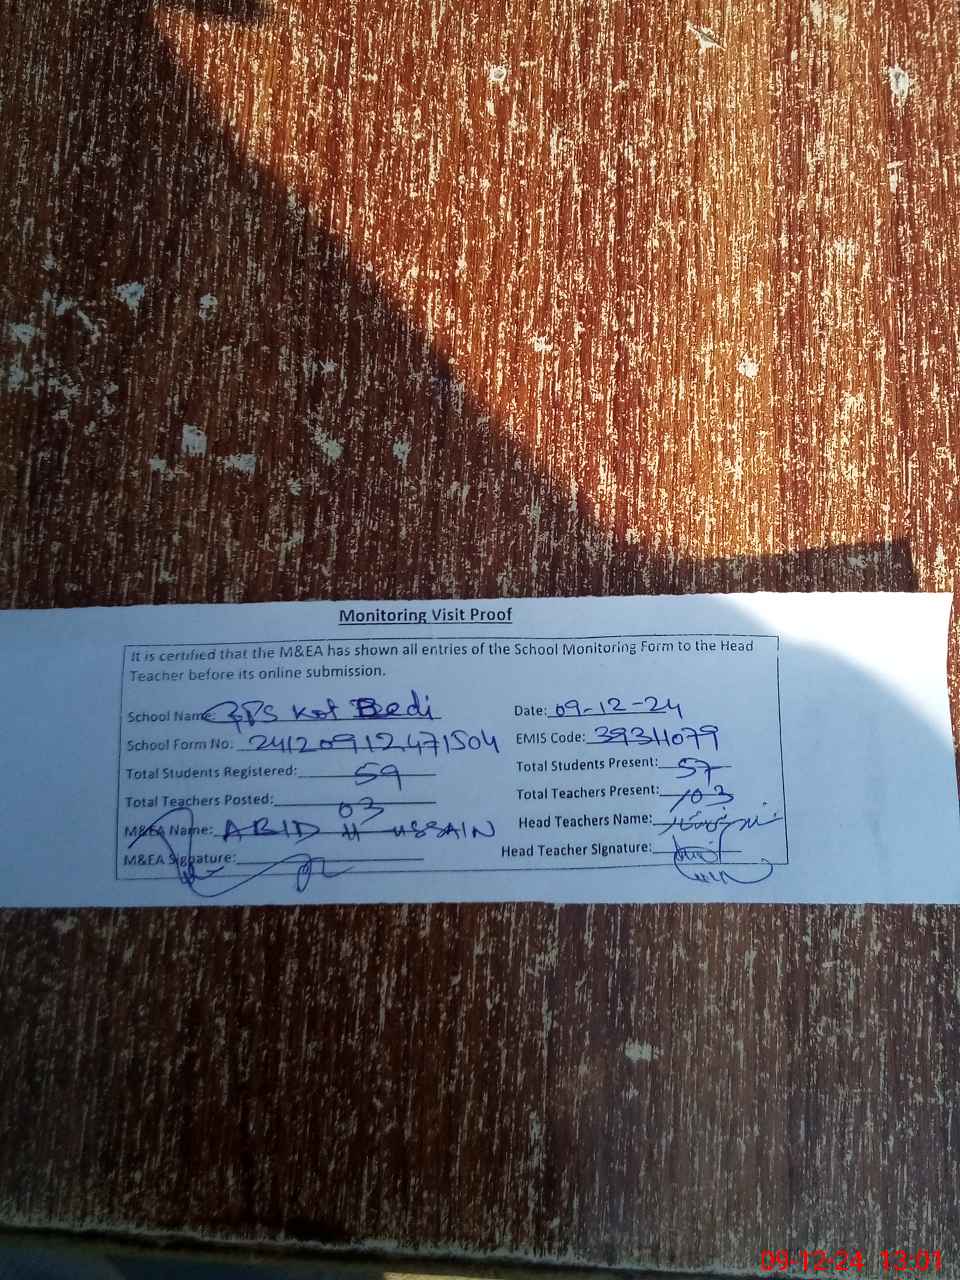 Monitoring Visit Proof
It is certified that the M&EA has shown all entries of the School Monitoring Form to the Head
Teacher before its online submission.
School Name: GPS Kot Bedi Date: 09-12-24
School Form No: 24120912471504 EMIS Code: 39311079
Total Students Registered: 59 Total Students Present: 57
Total Teachers Posted: 03 Total Teachers Present: 03
M&EA Name: ABID HUSSAIN Head Teachers Name:
M&EA Signature: Head Teacher Signature:
09-12-24 13:01